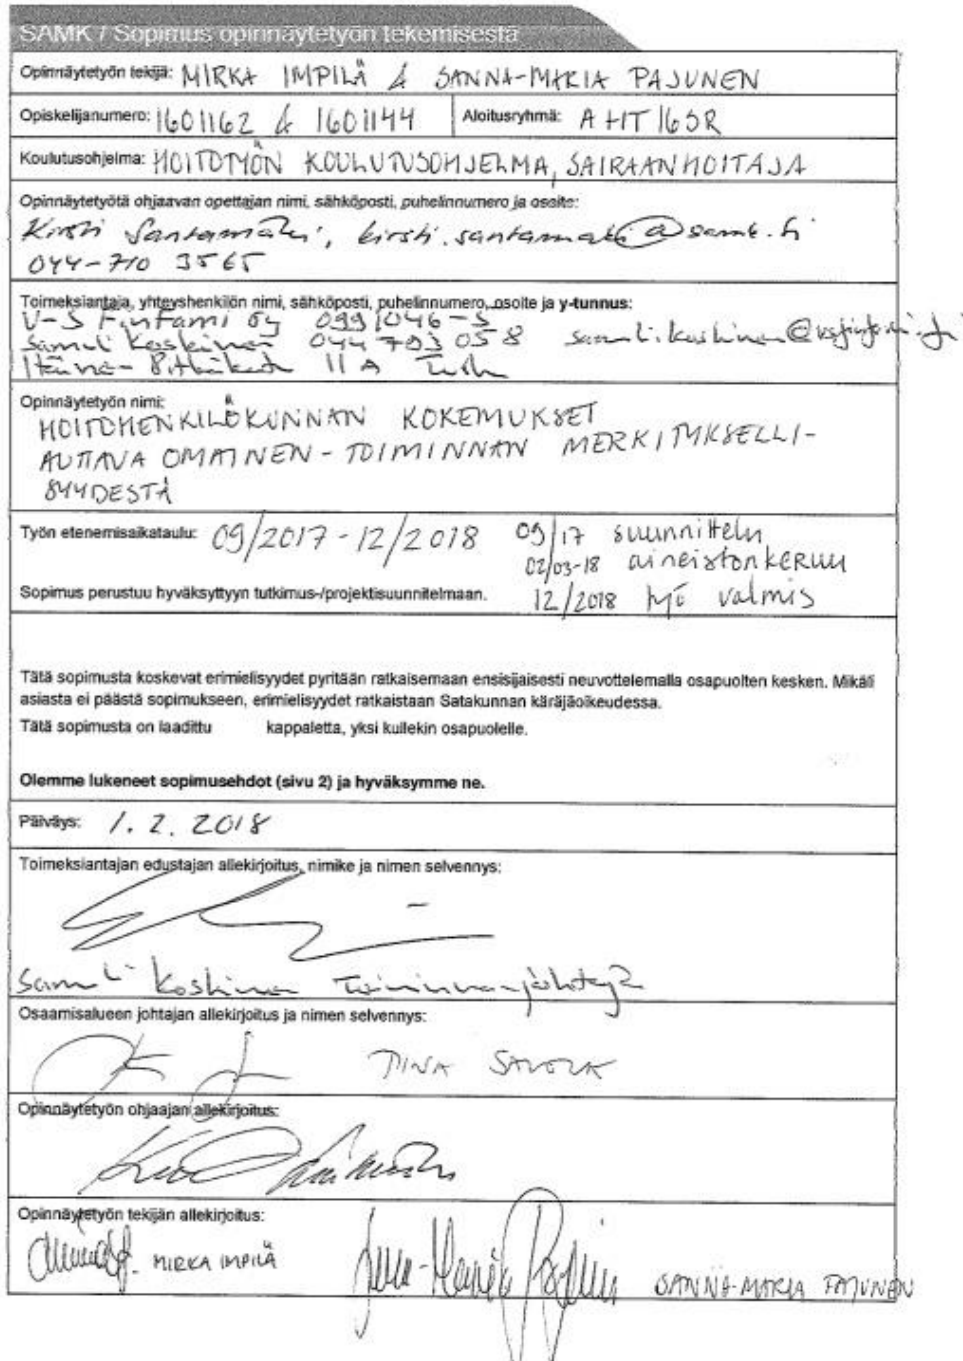 SAMK / Sopimus opinnäytetyön tekemisestä
Opinnäytetyön tekijä: MIRKA IMPILÄ & SANNA-MARIA PAJUNEN
Opiskelijanumero: 1601162 & 1601144 Aloitusryhmä: AHT16SR
Koulutusohjelma: HOITOTYÖN KOULUTUSOHJELMA, SAIRAANHOITAJA
Opinnäytetyötä ohjaavan opettajan nimi, sähköposti, puhelinnumero ja osoite:
Kirsti Santamäki, kirsti.santamaki@samk.fi
044-710 3565
Toimeksiantaja, yhteyshenkilön nimi, sähköposti, puhelinnumero, osoite ja y-tunnus:
V-S FinFami Oy 0991046-5
Samuli Koskinen 044 703 058
Itäinen Pitkäkatu 11 A Turku
Opinnäytetyön nimi:
HOITOHENKILÖKUNNAN KOKEMUKSET
AUTTAVA OMAINEN-TOIMINNAN MERKITYKSELLI-
SYYDESTÄ
Työn etenemisaikataulu: 09/2017-12/2018 09/17 suunnittelu
02/03-18 aineistonkeruu
Sopimus perustuu hyväksyttyyn tutkimus-/projektisuunnitelmaan. 12/2018 työ valmis
Tätä sopimusta koskevat erimielisyydet pyritään ratkaisemaan ensisijaisesti neuvottelemalla osapuolten kesken. Mikäli
asiasta ei päästä sopimukseen, erimielisyydet ratkaistaan Satakunnan käräjäoikeudessa.
Tätä sopimusta on laadittu kappaletta, yksi kullekin osapuolelle.
Olemme lukeneet sopimusehdot (sivu 2) ja hyväksymme ne.
Päiväys: 1.2.2018
Toimeksiantajan edustajan allekirjoitus, nimike ja nimen selvennys:
Samuli Koskinen Toiminnanjohtaja
Osaamisalueen johtajan allekirjoitus ja nimen selvennys:
TIINA SAVOLA
Opinnäytetyön ohjaajan allekirjoitus:
Opinnäytetyön tekijän allekirjoitus:
MIRKA IMPILÄ Sanna-Maria Pajunen SANNA-MARIA PAJUNEN